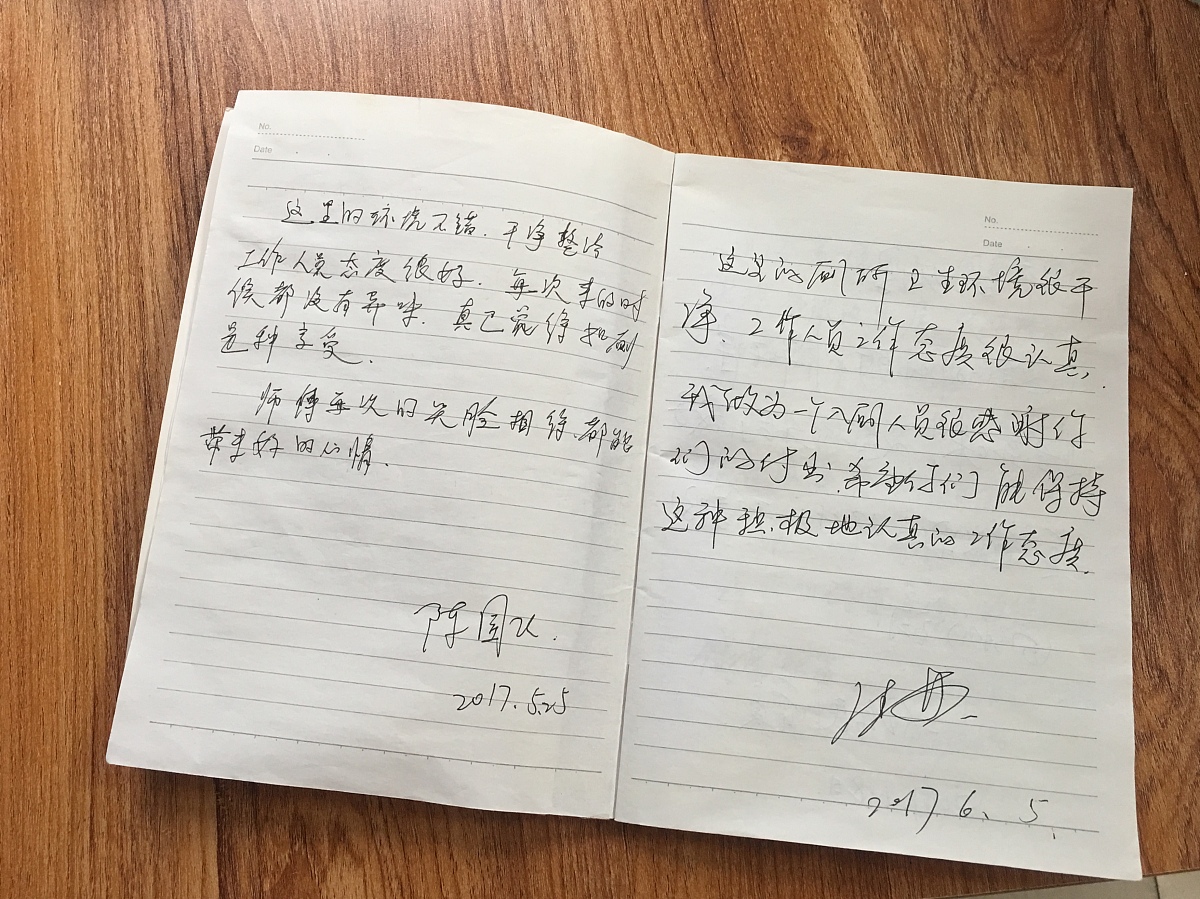 No.
Date
这里的环境不错.干净整洁
工作人员态度很好.每次来的时
候都没有异味.真已觉得如厕
是种享受.
师傅每次的笑脸相待.都能
带来好的心情.
陈国
2017.5.25
No.
Date
这里的厕所卫生环境很干
净.工作人员工作态度很认真,
我做为一个入厕人员很感谢你
们的付出.希望你们能保持
这种积极地认真的工作态度.
2017 6、5、